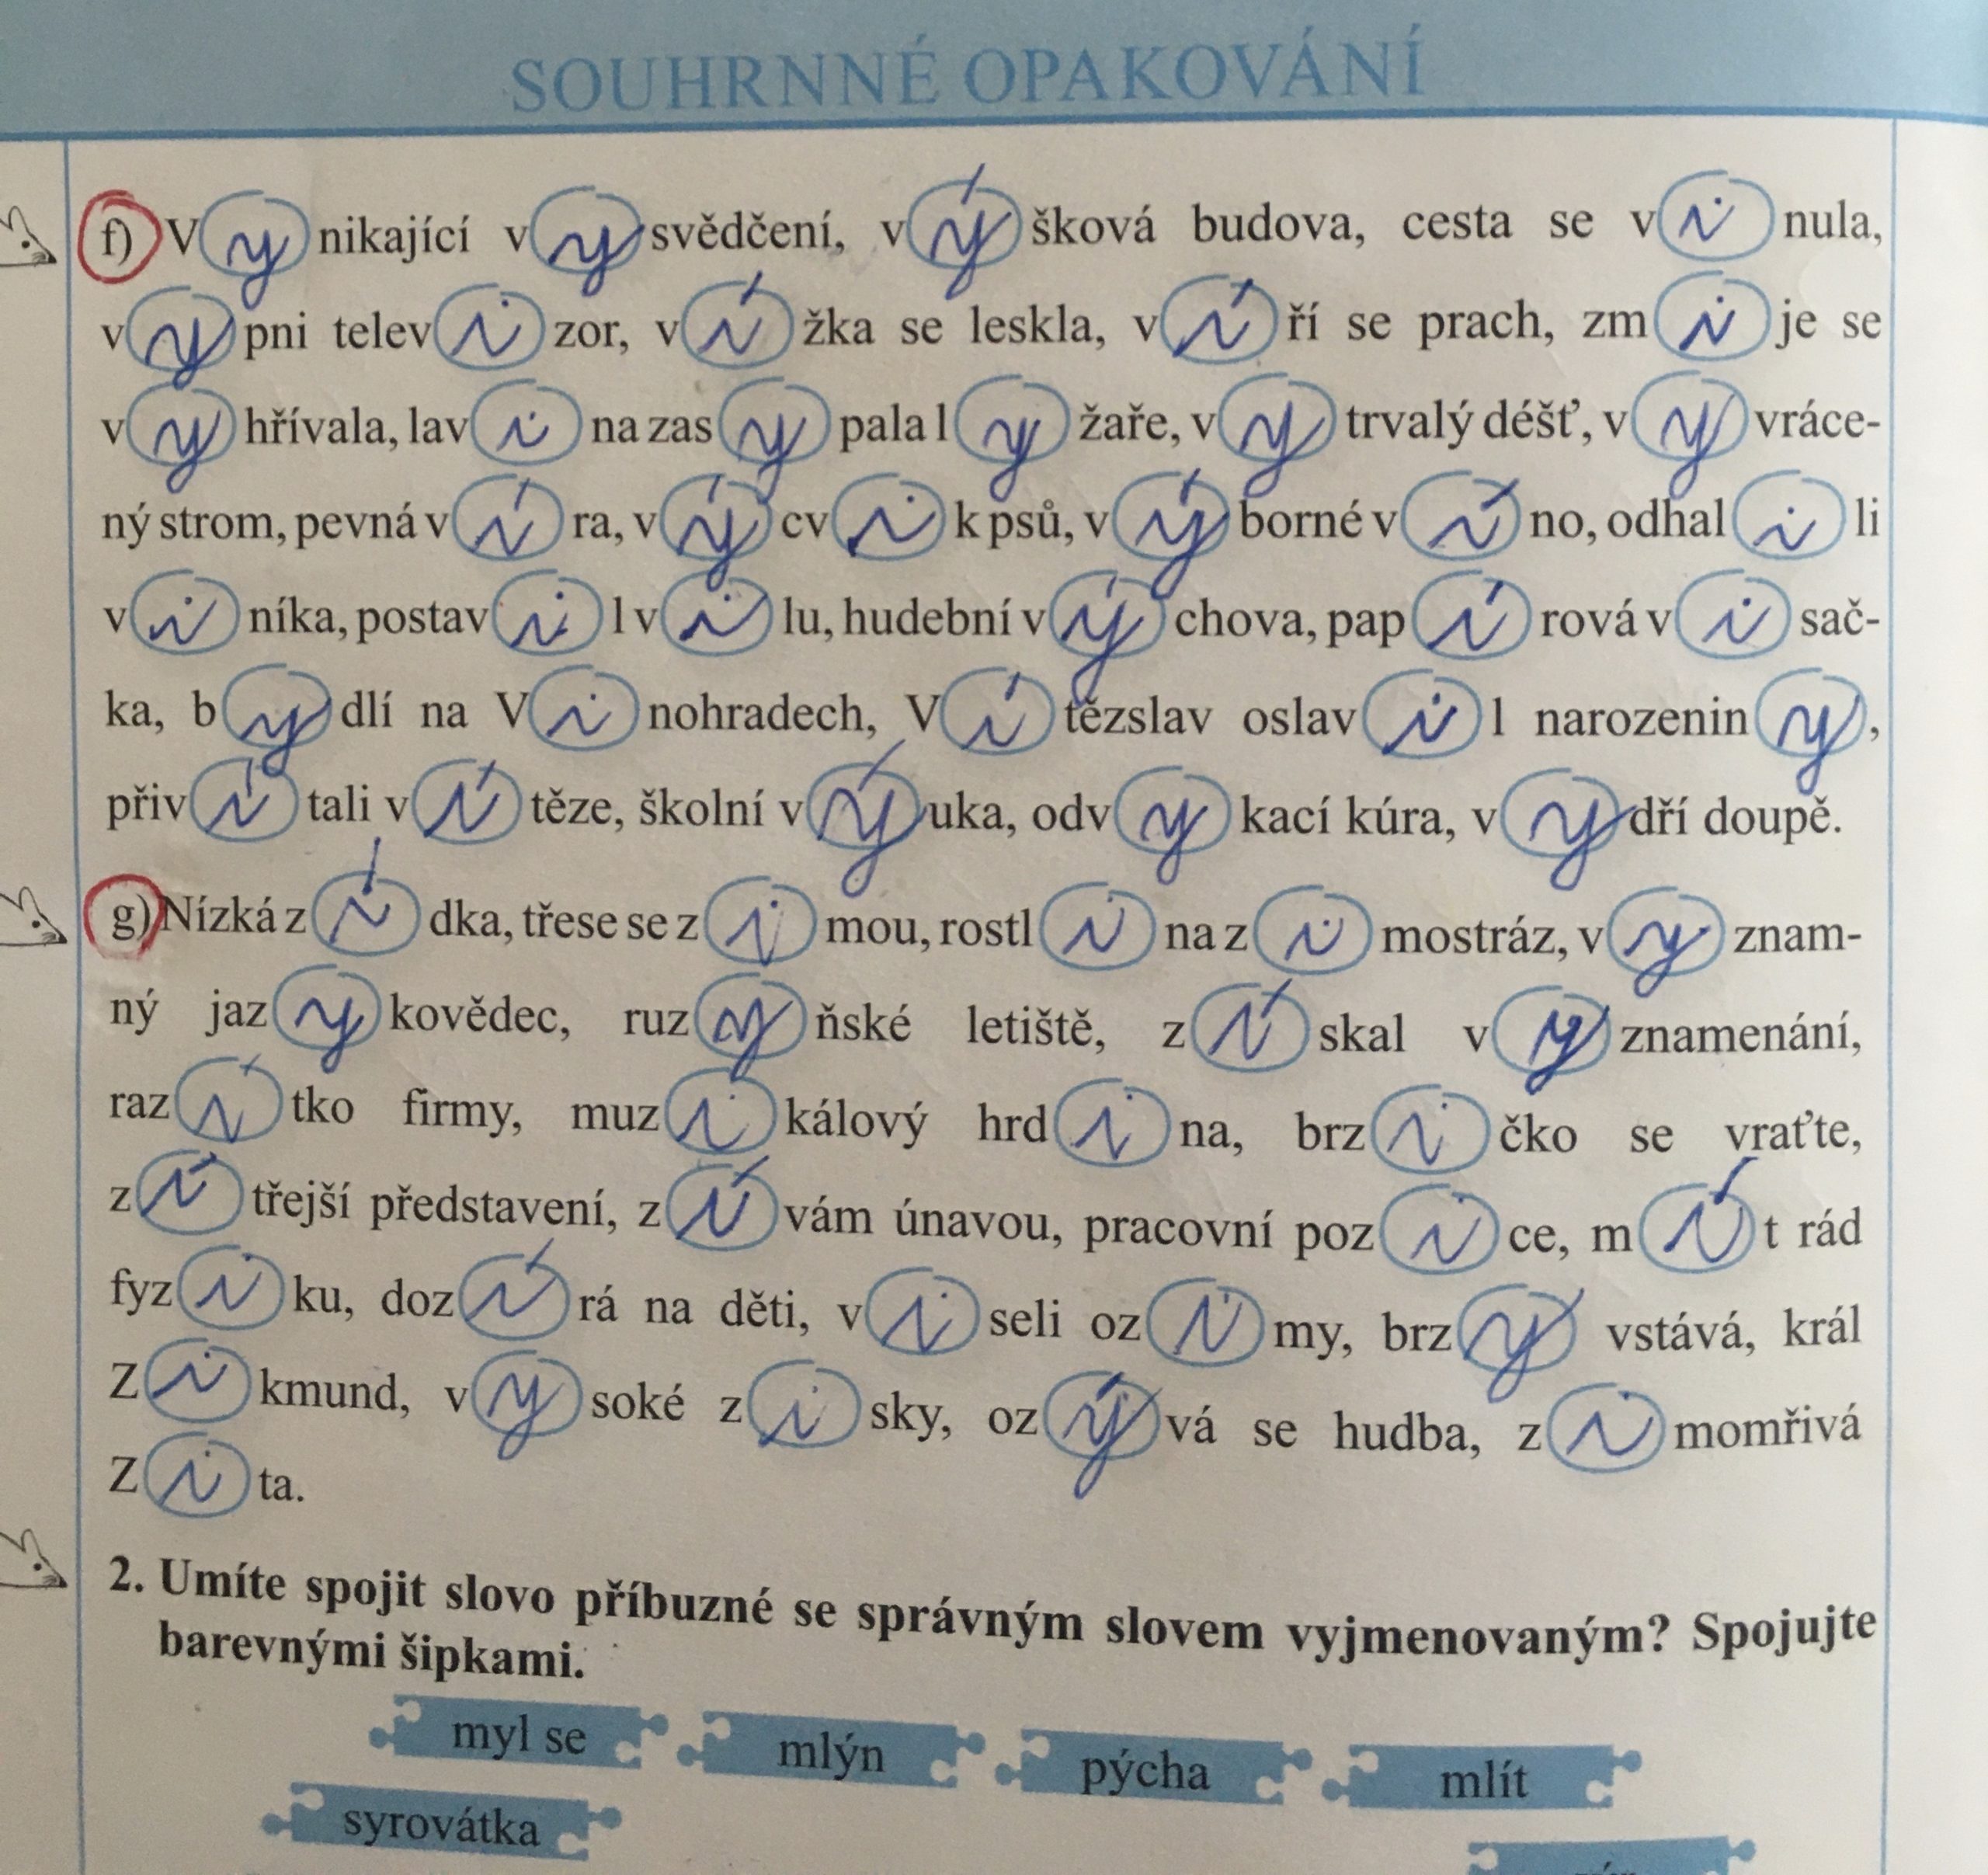 SOUHRNNÉ OPAKOVÁNÍ
f) Vynikající vysvědčení, výšková budova, cesta se vinula,
vypni televizor, vížka se leskla, víří se prach, zmije se
vyhřívala, lavina zasypala lyžaře, vytrvalý déšť, vyvráce-
ný strom, pevná víra, výcvik psů, výborné víno, odhalili
viníka, postavil vilu, hudební výchova, papírová visač-
ka, bydlí na Vinohradech, Vítězslav oslavil narozeniny,
přivítali vítěze, školní výuka, odvykací kúra, vydří doupě.
g) Nízká zídka, třese se zimou, rostlina zimostráz, význam-
ný jazykovědec, ruzyňské letiště, získal vyznamenání,
razítko firmy, muzikálový hrdina, brzičko se vraťte,
zítřejší představení, zívám únavou, pracovní pozice, mít rád
fyziku, dozírá na děti, viseli ozimy, brzy vstává, král
Zikmund, vysoké zisky, ozývá se hudba, zimomřivá
Zita.
2. Umíte spojit slovo příbuzné se správným slovem vyjmenovaným? Spojujte
barevnými šipkami.
myl se mlýn pýcha mlít
syrovátka